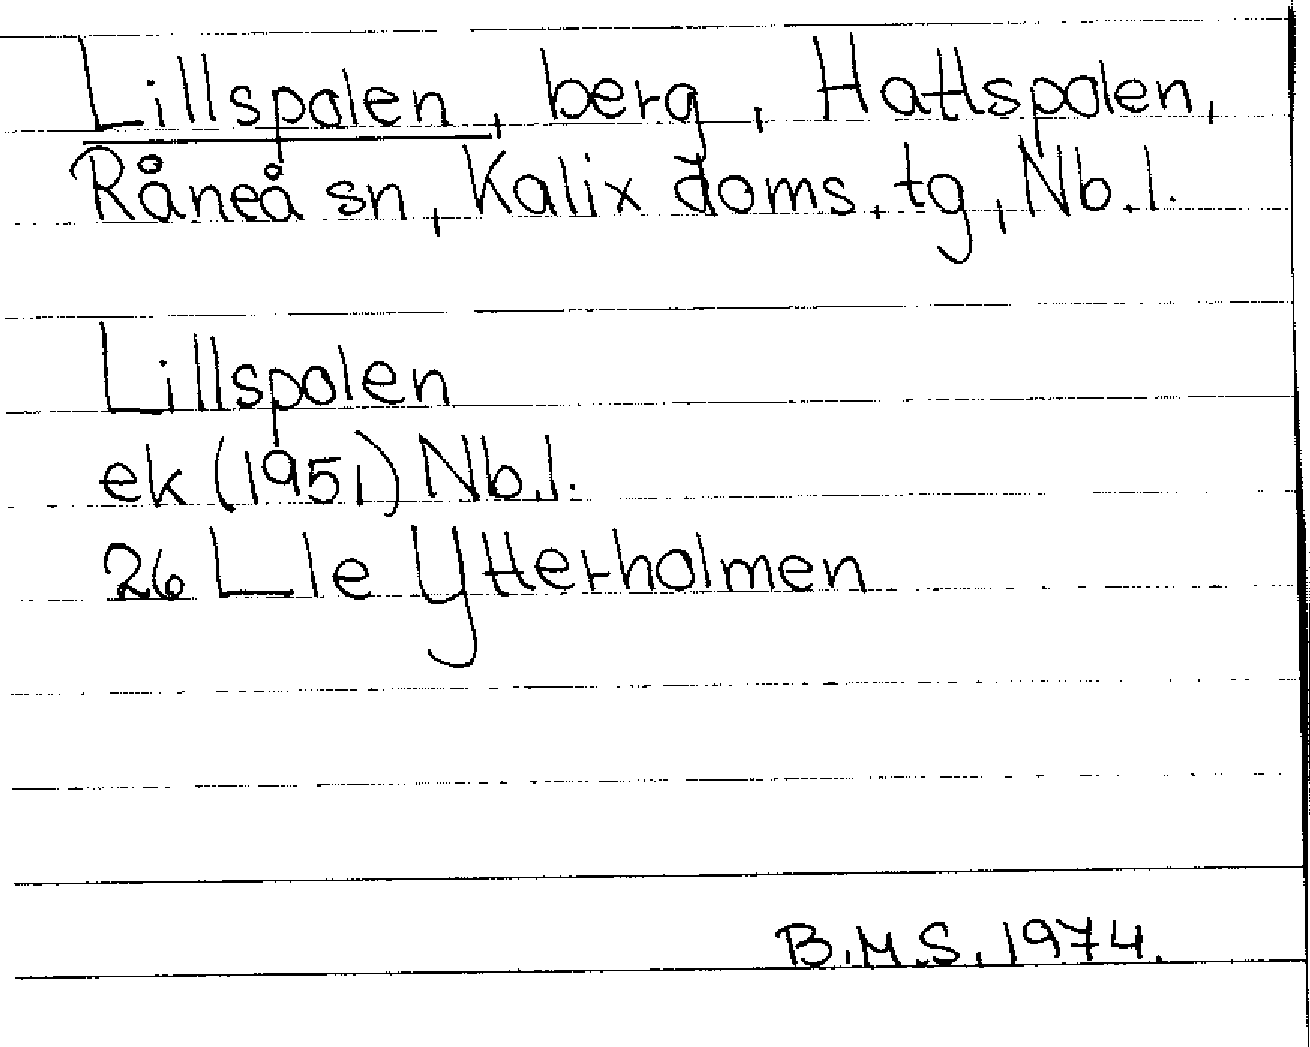 Lillspolen, berg, Hattspolen,
Råneå sn, Kalix doms. tg, Nb.l.
Lillspolen
ek (1951) Nb.l.
26 L le Ytterholmen
B.M.S. 1974.